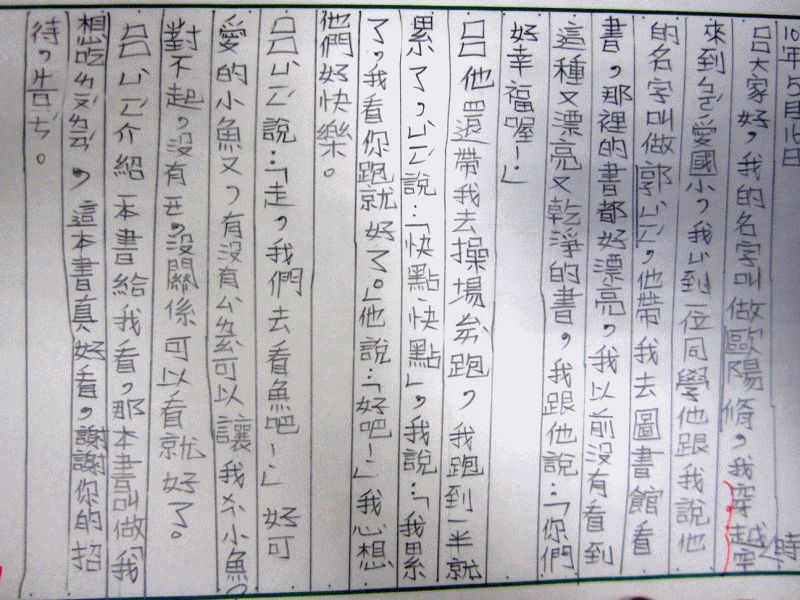 10年5月16日
大家好，我的名字叫做歐陽脩，我穿越時
來到ㄅㄛˊ愛國小，我ㄩˋ到一位同學他跟我說他
的名字叫做郭ㄙㄈ，他帶我去圖書館看
書，那裡的書都好漂亮，我以前沒有看到
這種又漂亮又乾淨的書，我跟他說：「你們
好幸福喔！」
他還帶我去操場ㄆㄠˇ跑，我跑到一半就
累了，說：「快點快點」，我說：「我累
了，我看你跑就好了。」他說：「好吧！」我心想
他們好快樂。
說：「走，我們去看魚吧！」好可
愛的小魚又，有沒有可以讓我小魚？
對不起，沒有，沒關係可以看就好了。
介紹一本書給我看，那本書叫做「我
想吃，這本書真好看，謝謝你的招
待，